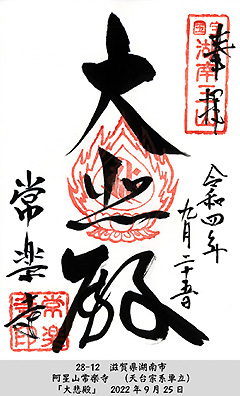 奉拝
国宝
湖南三山
令和四年
九月二十五日
大悲殿
常楽寺
28-12 滋賀県湖南市
阿星山常楽寺 (天台宗系単立)
「大悲殿」 2022年9月25日